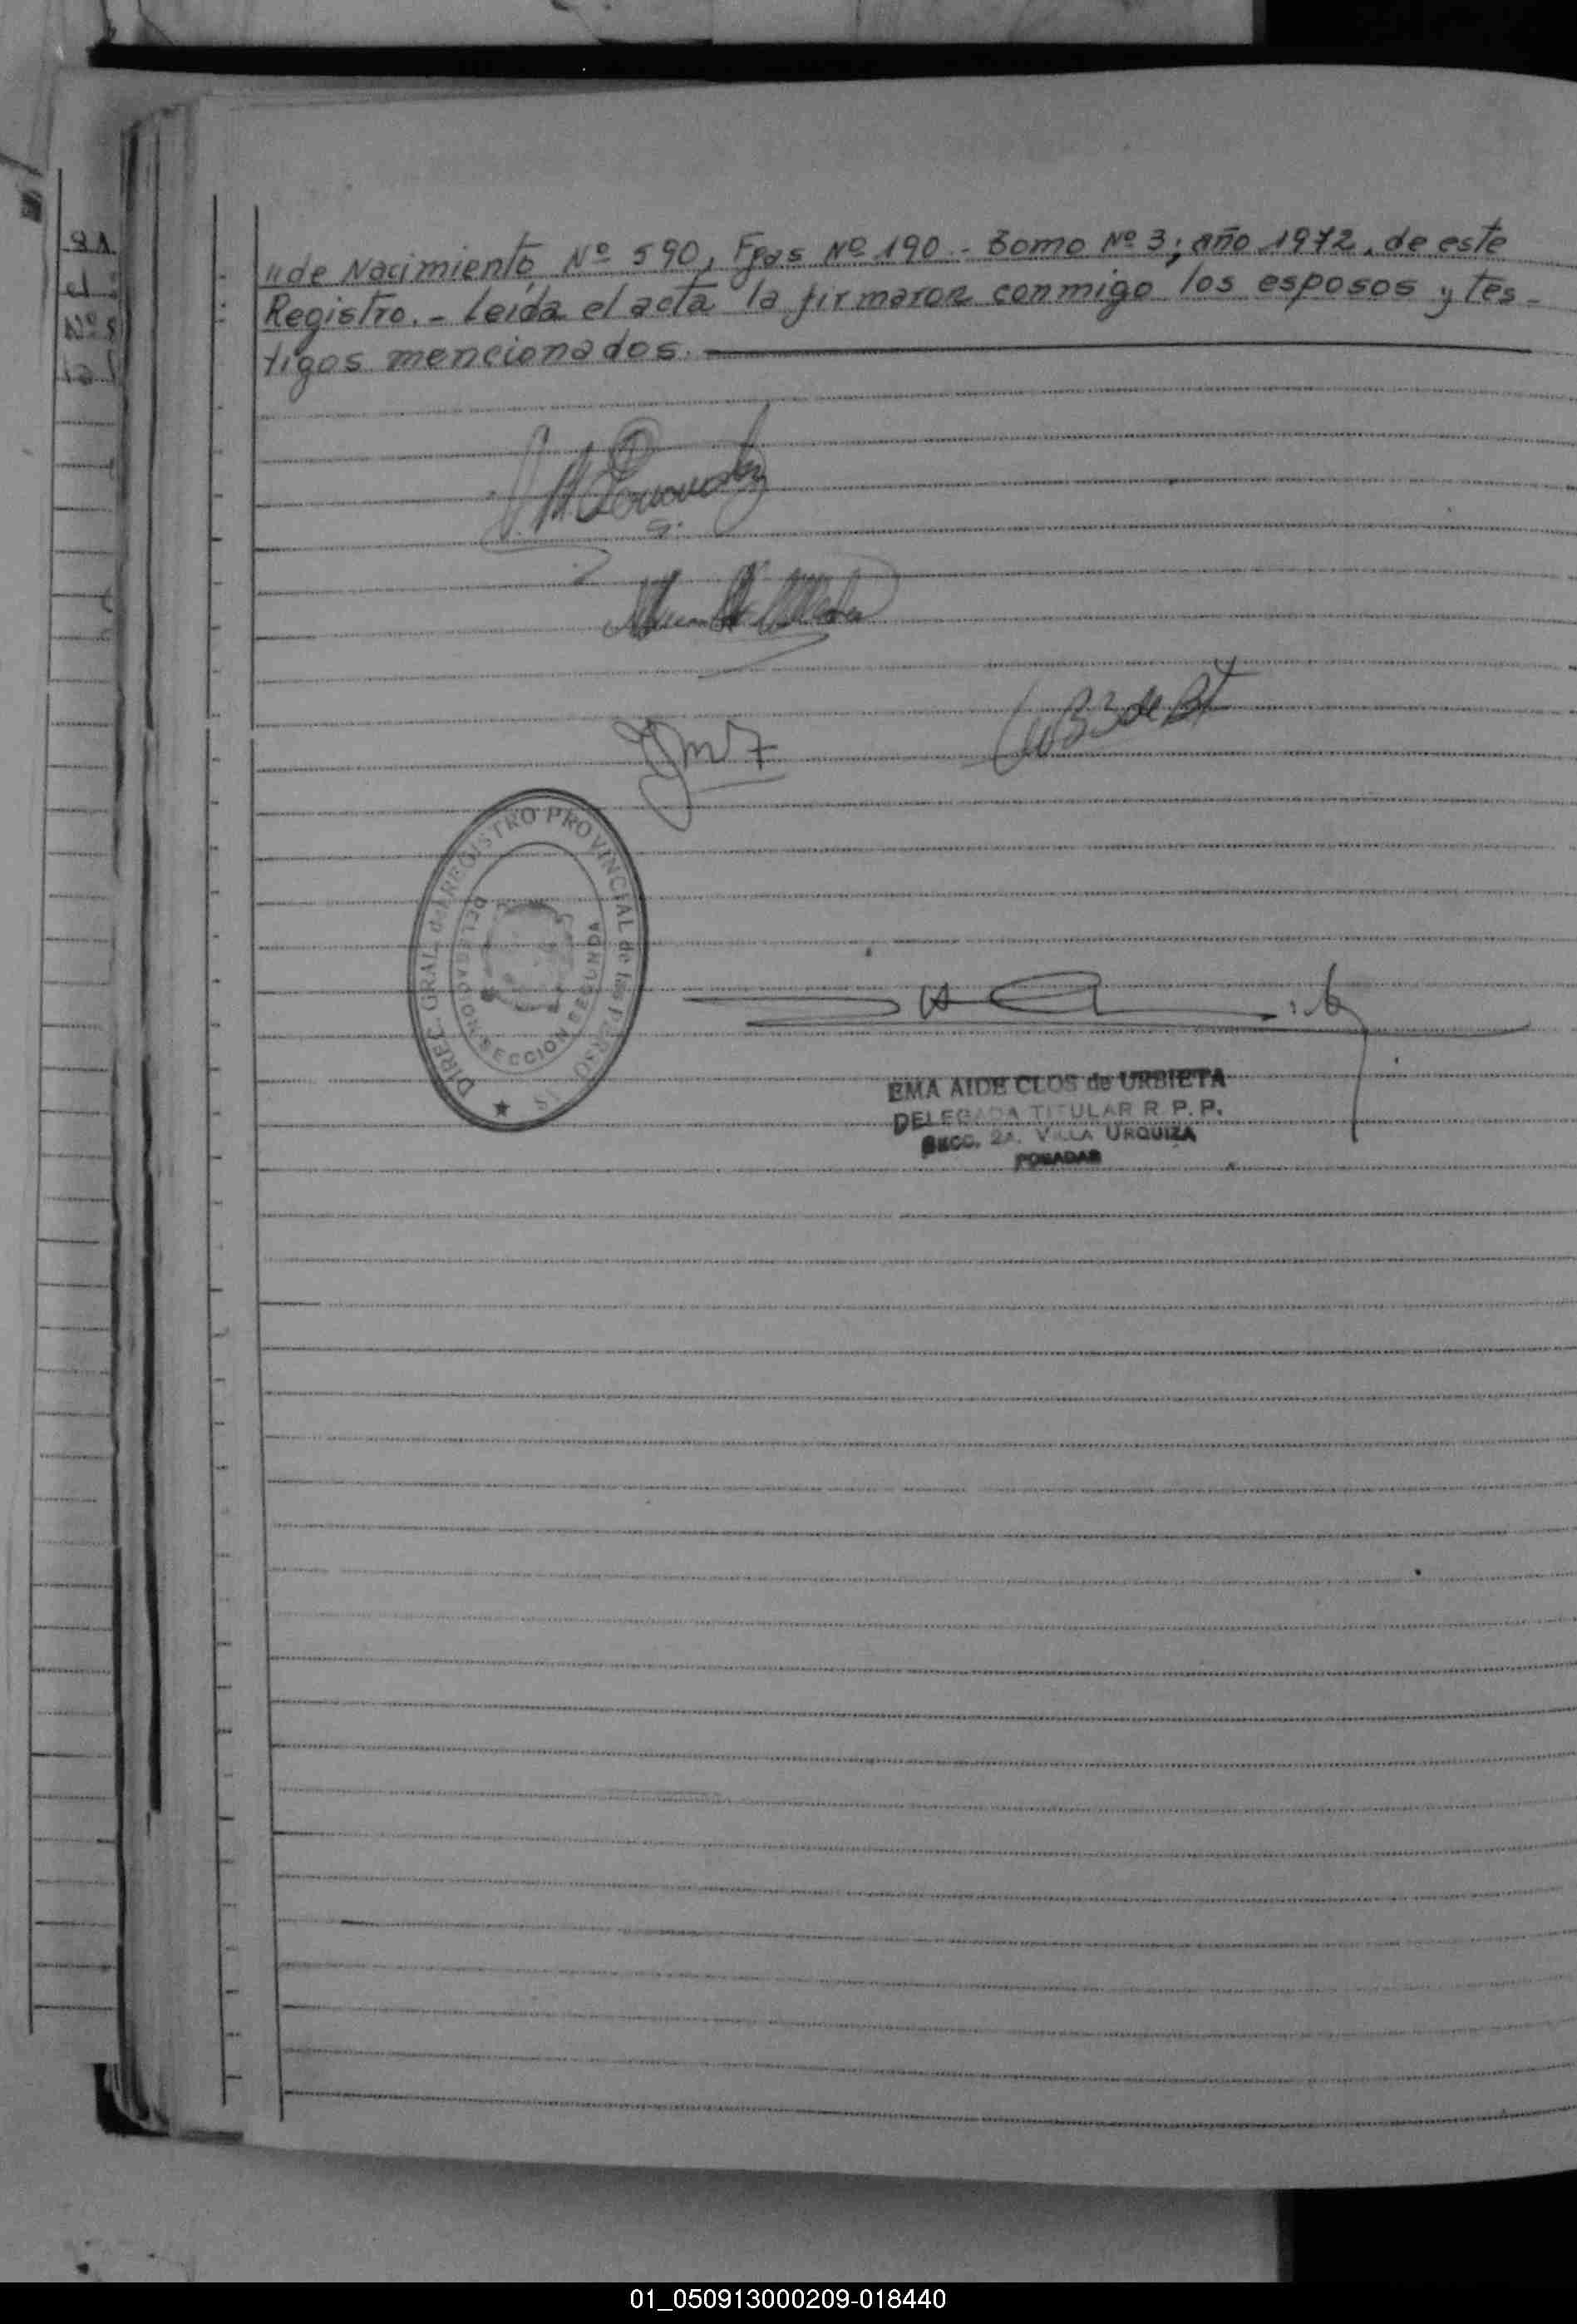 "de Nacimiento Nº 590, Fjas Nº 190.- Tomo Nº 3; año 1972, de este
Registro.- Leída el acta la firmaron conmigo los esposos y tes-
tigos mencionados.
DIREC. GRAL. del REGISTRO PROVINCIAL de las PERSO
DELEGACION SECCION SEGUNDA
EMA AIDE CLOS de URBIETA
DELEGADA TITULAR R. P. P.
SECC. 2a. VILLA URQUIZA
POSADAS
01_050913000209-018440